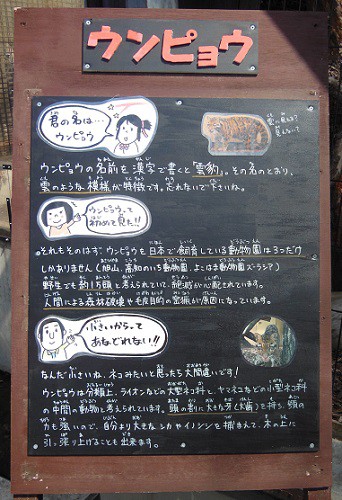 ウンピョウ
君の名は…
ウンピョウ
雲に見える?
見えない?
ウンピョウの名前を漢字で書くと「雲豹」。その名のとおり、
雲のような模様が特徴です。忘れないで下さいね。
ウンピョウって
はじめて見た!!
それもそのはず、ウンピョウを日本で飼育している動物園は3つだけ
しかありません(旭山、高知のいち動物園、よこはま動物園ズーラシア)
野生でも約1万頭と考えられていて、絶滅が心配されています。
人間による森林破壊や毛皮目的の密猟が原因になっています。
小さいからって
あなどれない!!
なんだ小さいね、ネコみたいと思ったら大間違いです!
ウンピョウは分類上、ライオンなどの大型ネコ科と、ヤマネコなどの小型ネコ科
の中間の動物と考えられています。頭の割に大きな牙(犬歯)を持ち、顎の
力も強いので、自分より大きなシカやイノシシを捕まえて、木の上に
引っ張り上げることも出来ます。